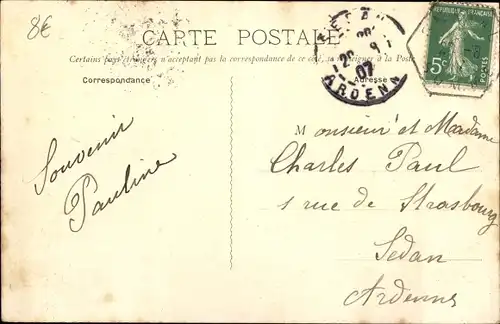 8€
CARTE POSTALE
Certains pays étrangers n'acceptent pas la correspondance de ce côté, se renseigner à la Poste
Correspondance
Adresse
REPUBLIQUE FRANÇAISE
5c
POSTES
07
ARDENN
Souvenir
Pauline
Monsieur et Madame
Charles Paul
1 rue de Strasbourg
Sedan
Ardennes